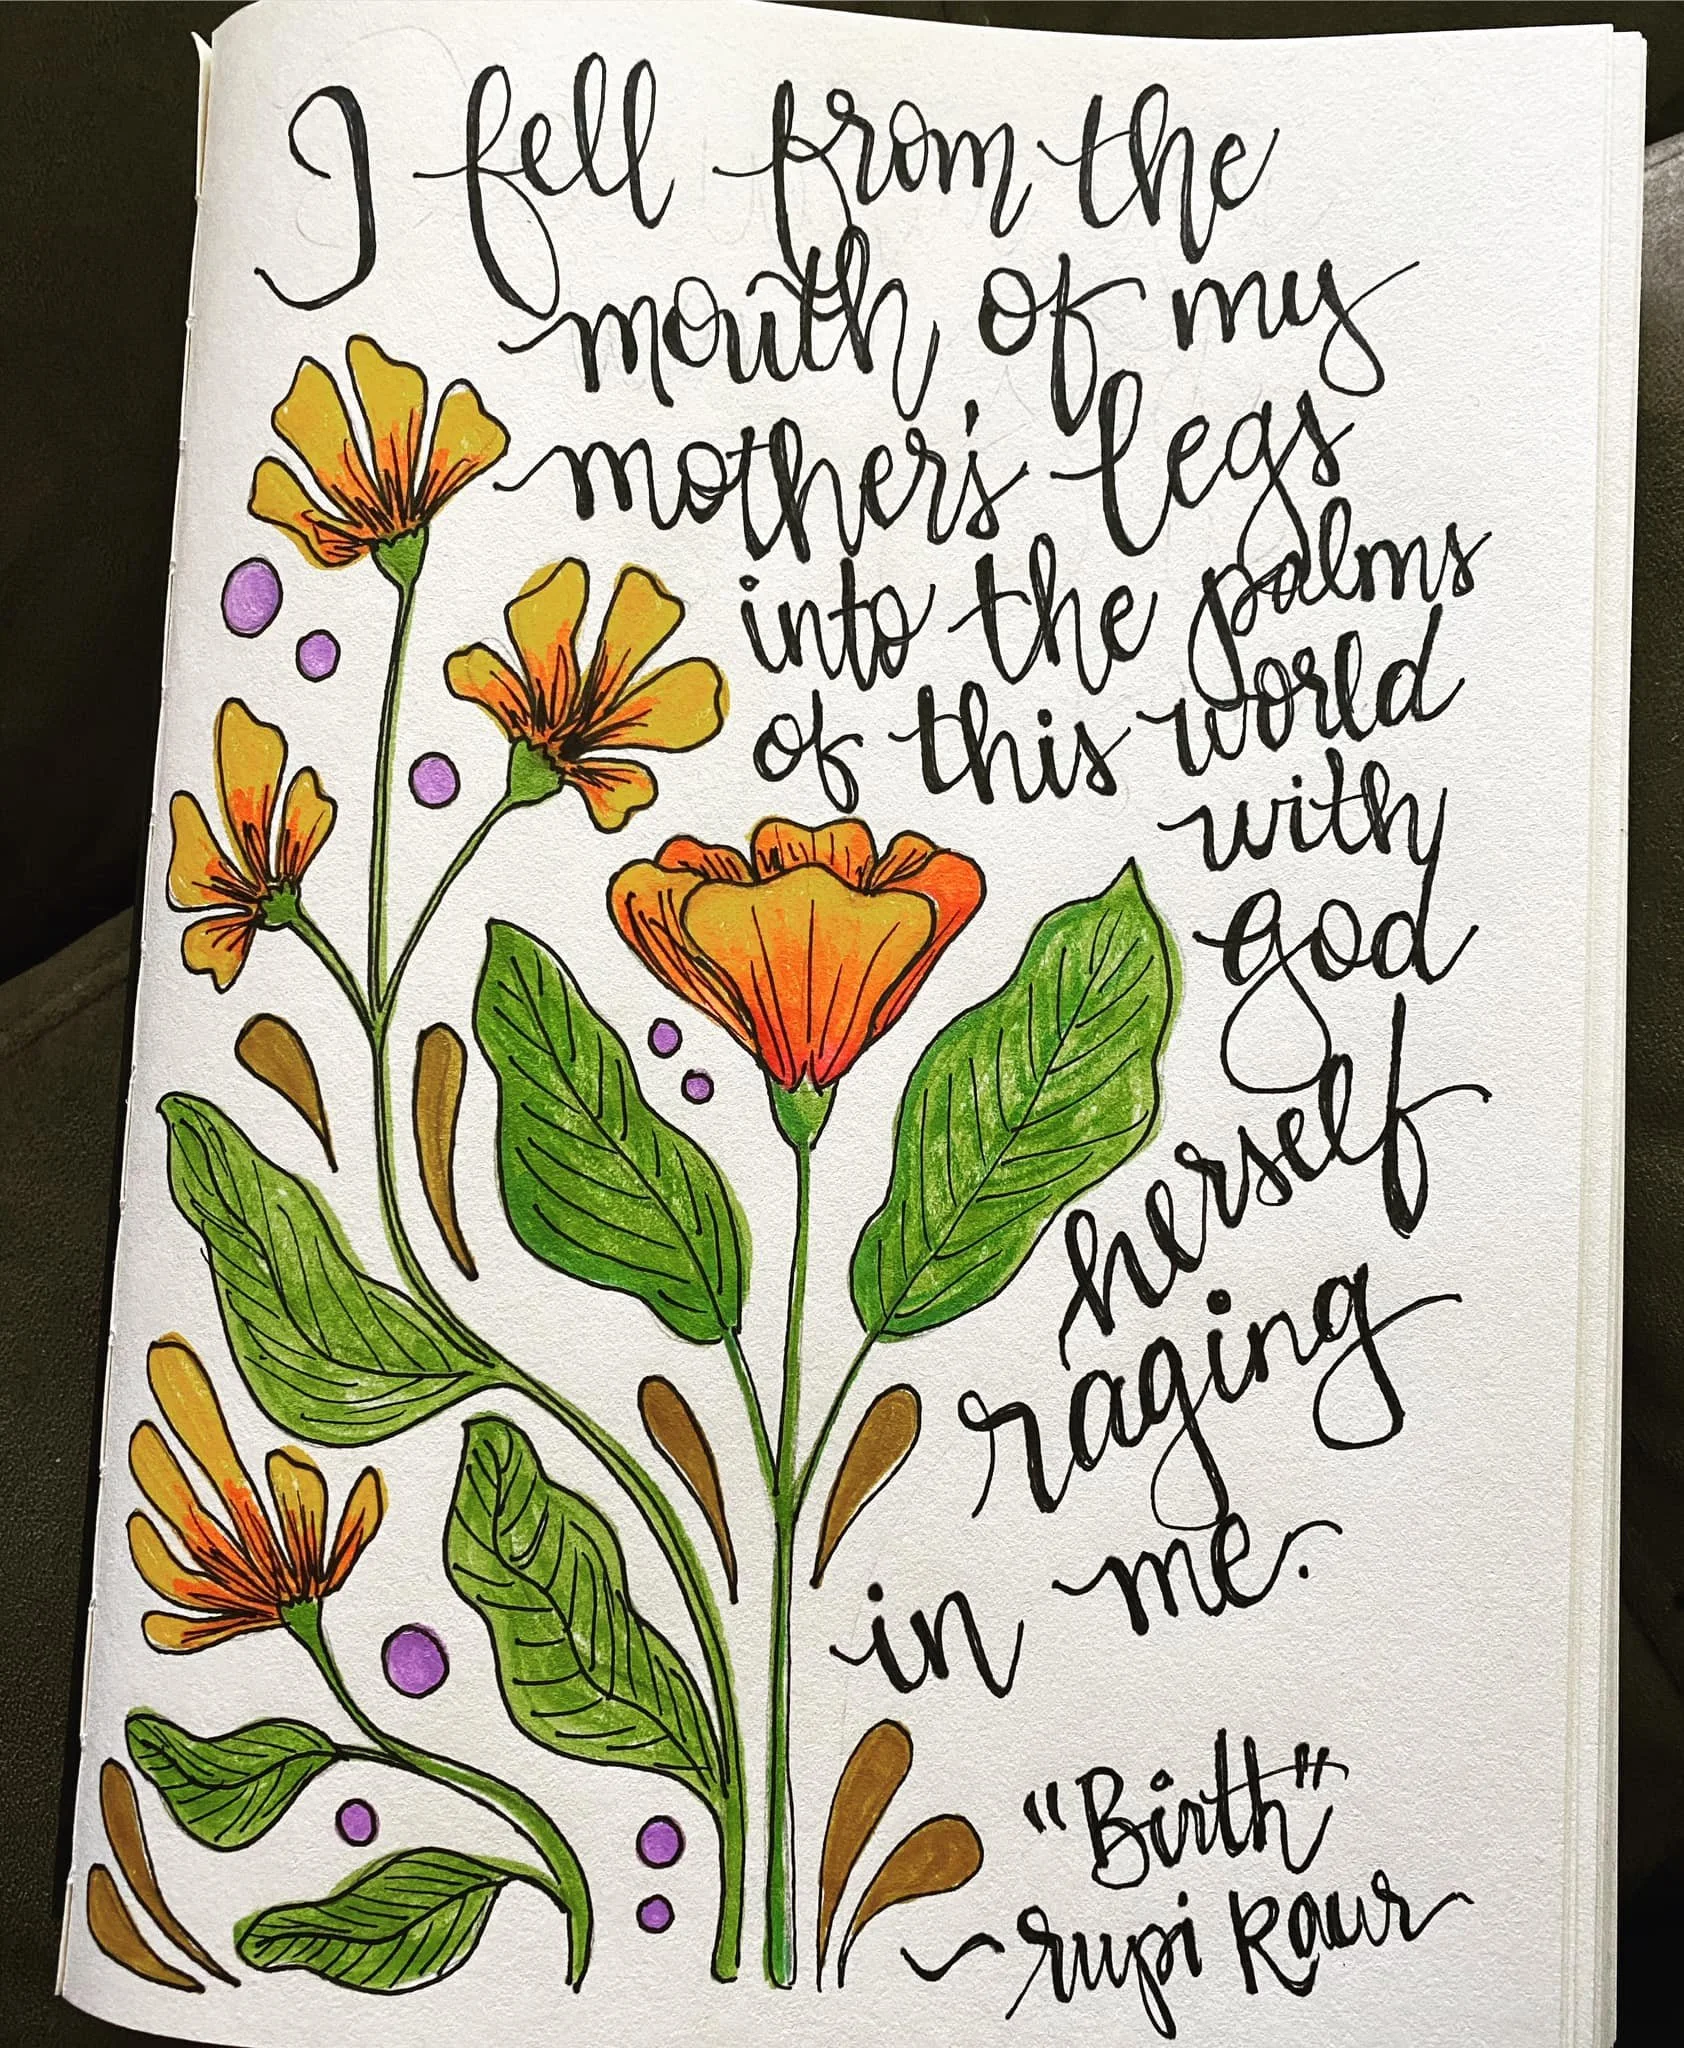 I fell from the
mouth of my
mother's legs
into the palms
of this world
with
god
herself
raging
in me.
"Birth"
~ rupi kaur